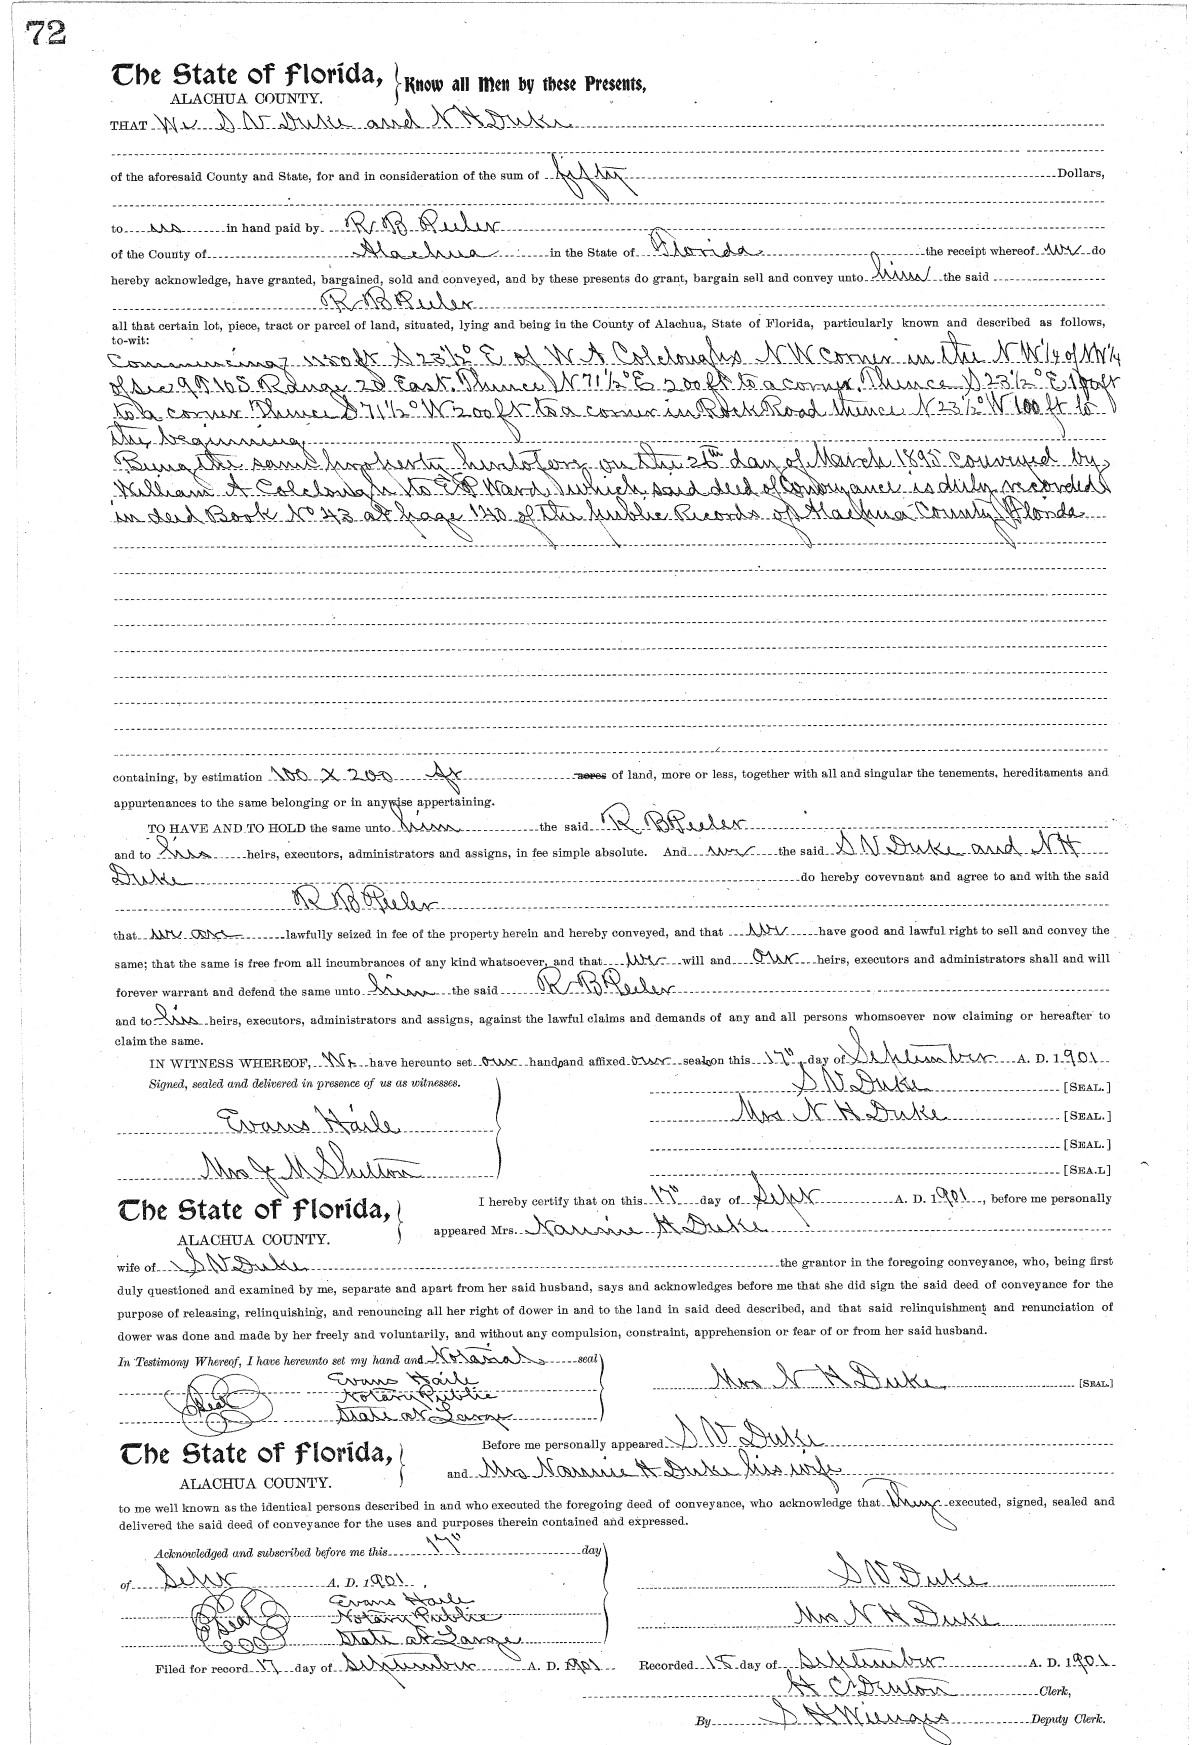 72
The State of Florida, Know all Men by these Presents,
ALACHUA COUNTY.
THAT We S V Duke and N H Duke
of the aforesaid County and State, for and in consideration of the sum of fifty Dollars,
to us in hand paid by R B Peeler
of the County of Alachua in the State of Florida the receipt whereof we do
hereby acknowledge, have granted, bargained, sold and conveyed, and by these presents do grant, bargain sell and convey unto him the said
R B Peeler
all that certain lot, piece, tract or parcel of land, situated, lying and being in the County of Alachua, State of Florida, particularly known and described as follows,
to-wit:
Commencing 1150 ft S 23 1/2° E of W A Colcloughs N W corner in the N W 1/4 of N W 1/4
of Sec 9 T 10 S Range 20 East. Thence N 71 1/2° E 200 ft to a corner. Thence S 23 1/2° E 100 ft
to a corner Thence S 71 1/2° W 200 ft to a corner in Rock Road thence N 23 1/2° W 100 ft to
the beginning
Being the same property heretofore on the 26th day of March 1895 conveyed by
William A Colclough to E P Ward which said deed of Conveyance is duly recorded
in deed Book No 43 at page 140 of the public Records of Alachua County Florida
containing, by estimation 100 X 200 ft acres of land, more or less, together with all and singular the tenements, hereditaments and
appurtenances to the same belonging or in anywise appertaining.
TO HAVE AND TO HOLD the same unto him the said R B Peeler
and to his heirs, executors, administrators and assigns, in fee simple absolute. And we the said S V Duke and N H
Duke do hereby covevnant and agree to and with the said
R B Peeler
that we are lawfully seized in fee of the property herein and hereby conveyed, and that we have good and lawful right to sell and convey the
same; that the same is free from all incumbrances of any kind whatsoever, and that we will and our heirs, executors and administrators shall and will
forever warrant and defend the same unto him the said R B Peeler
and to his heirs, executors, administrators and assigns, against the lawful claims and demands of any and all persons whomsoever now claiming or hereafter to
claim the same.
IN WITNESS WHEREOF, We have hereunto set our hands and affixed our seals on this 17" day of September A. D. 1901
Signed, sealed and delivered in presence of us as witnesses. S V Duke [SEAL.]
Mrs N H Duke [SEAL.]
Evans Haile
[SEAL.]
Mrs J M Shelton [SEA.L]
The State of Florida, I hereby certify that on this 17" day of Sept A. D. 1901, before me personally
ALACHUA COUNTY. appeared Mrs. Nannie H Duke
wife of S V Duke the grantor in the foregoing conveyance, who, being first
duly questioned and examined by me, separate and apart from her said husband, says and acknowledges before me that she did sign the said deed of conveyance for the
purpose of releasing, relinquishing, and renouncing all her right of dower in and to the land in said deed described, and that said relinquishment and renunciation of
dower was done and made by her freely and voluntarily, and without any compulsion, constraint, apprehension or fear of or from her said husband.
In Testimony Whereof, I have hereunto set my hand and Notarial seal
Evans Haile Mrs N H Duke [SEAL]
Seal Notary Public
State at Large
The State of Florida, Before me personally appeared S V Duke
ALACHUA COUNTY. and Mrs Nannie H Duke his wife
to me well known as the identical persons described in and who executed the foregoing deed of conveyance, who acknowledge that they executed, signed, sealed and
delivered the said deed of conveyance for the uses and purposes therein contained and expressed.
Acknowledged and subscribed before me this 17" day
of Sept A. D. 1901. S V Duke
Evans Haile
Seal Notary Public Mrs N H Duke
State at Large
Filed for record 17 day of September A. D. 1901 Recorded 18 day of September A. D. 1901
H C Denton Clerk,
By S H Wienges Deputy Clerk.